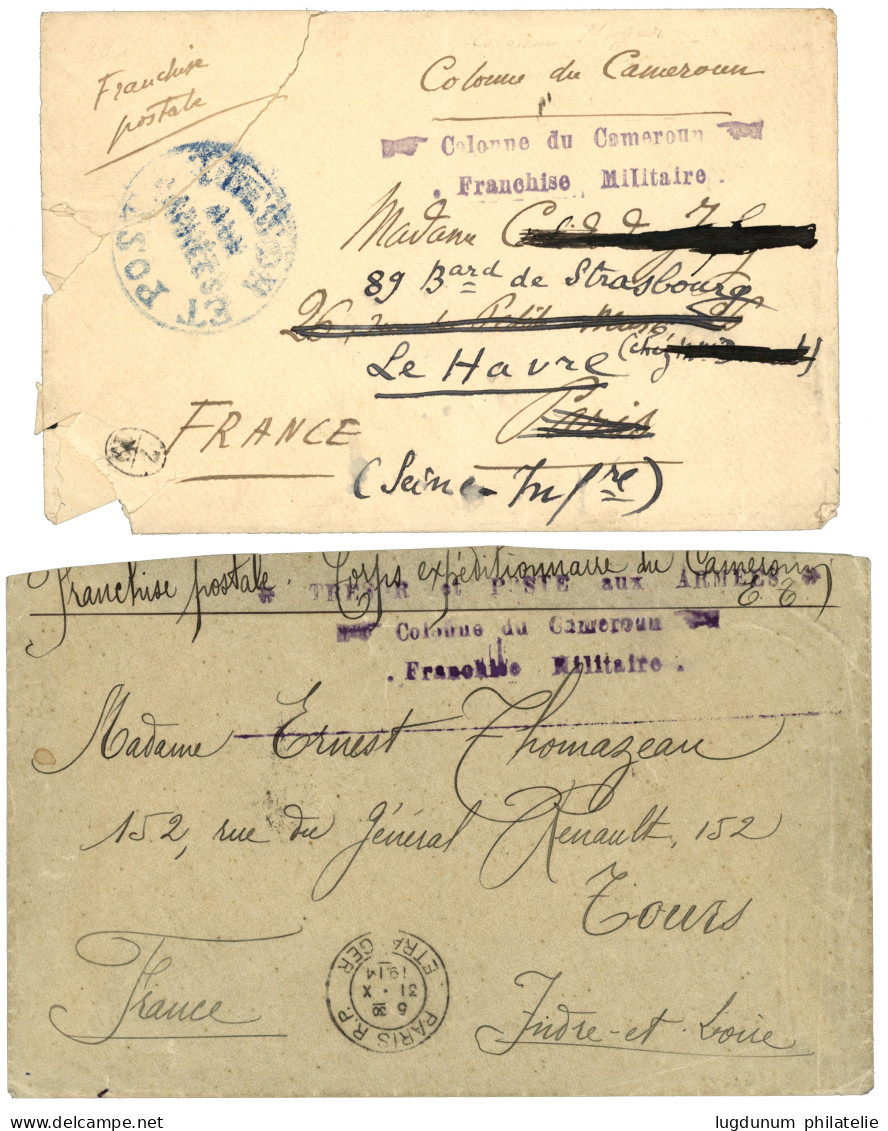 Franchise
postale
Colonne du Cameroun
Colonne du Cameroun
. Franchise Militaire .
TRESOR ET POSTES
AUX
ARMEES
Madame
89 Bard de Strasbourg
26, rue du Petit Musc
Le Havre (chez
Paris
FRANCE
(Seine-Infre)
Franchise postale. Corps expéditionnaire du Cameroun
* TRESOR et POSTE aux ARMEES *
Colonne du Cameroun
. Franchise Militaire .
Madame Ernest Thomazeau
152, rue du Général Renault, 152
Tours
France
Indre-et-Loire
PARIS R.P.
6 30
31 · X
1914
ETRANGER
lugdunum philatelie